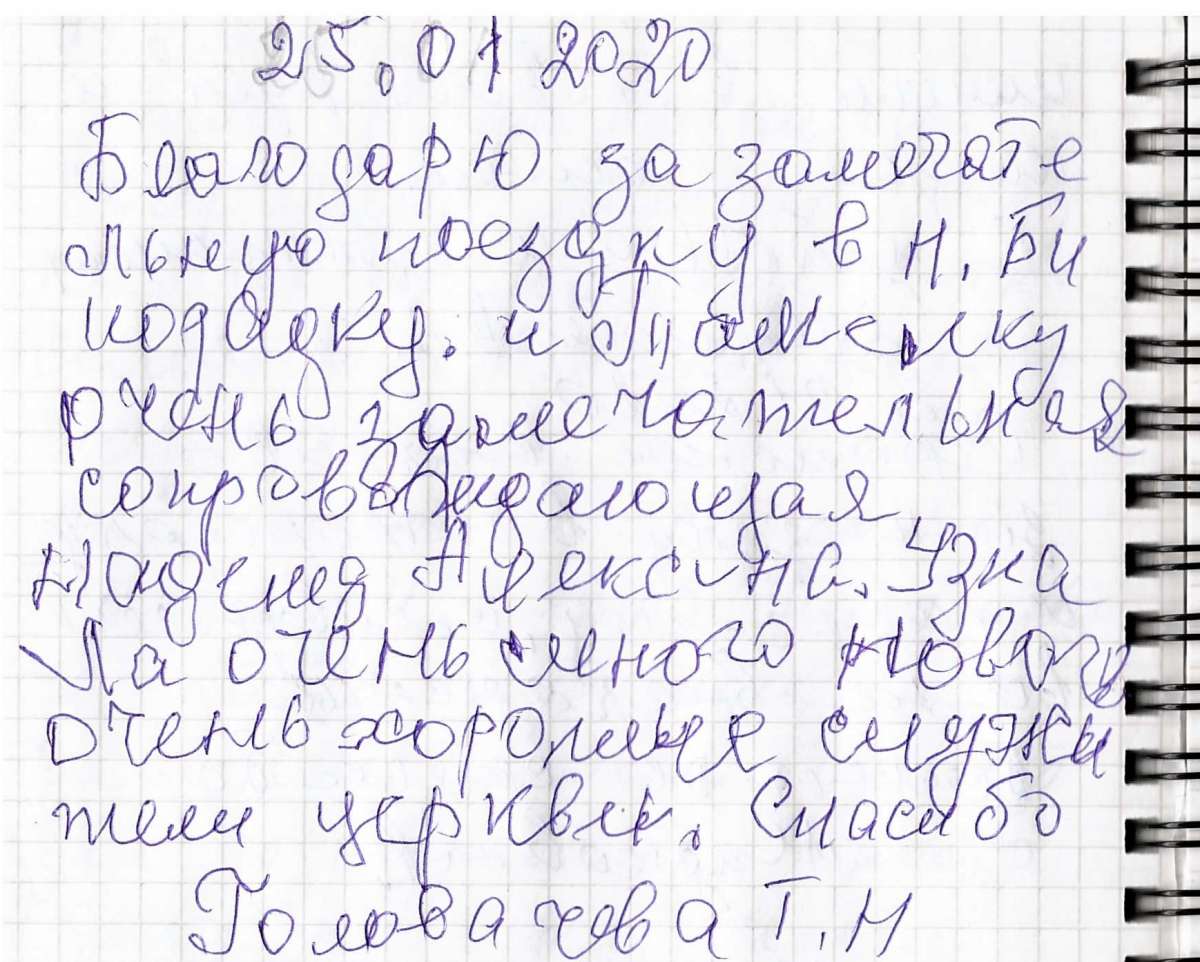 25.01 2020
Благодарю за замечате
льную поездку в Н. Би
кодацку. и
очень замечательная
сопровождающая
Надежда Алексин. Узна
ла очень много нового
очень хорошие служи
тели церкви. Спасибо
Головачева Т.Н